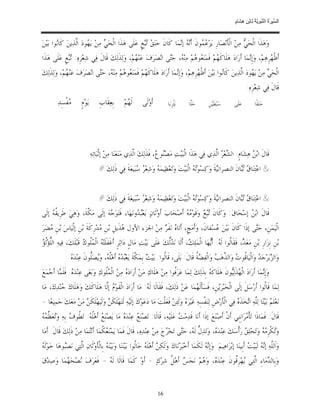 السّيرَة النّبَويّة لابْنِ هِشَام
وَهَذَا الْحَيُّ مِنْ الْأَنْصَارِ يَزْعُمُونَ أَنَّهُ إنَّمَا كَانَ حَنَقُ تُبَّعٍ عَلَى هَذَا الْحَيِّ مِنْ يَهُودَ الَّذِينَ كَانُوا بَيْنَ
أَظْهُرِهِمْ، وَإِنَّمَا أَرَادَ هَلَاكَهُمْ فَمَنَعُوهُمْ مِنْهُ، حَتَّى انْصَرَفَ عَنْهُمْ، وَلذَلِكَ قَالَ فِي شِعْرِهِ: تُبَّعٍ عَلَى هَذَا
الْحَيِّ مِنْ يَهُودَ الَّذِينَ كَانُوا بَيْنَ أَظْهُرِهِمْ، وَإِنَّمَا أَرَادَ هَلَاكَهُمْ فَمَنَعُوهُمْ مِنْهُ، حَتَّى انْصَرَفَ عَنْهُمْ، وَلذَلِكَ
قَالَ فِي شِعْرِهِ
حَنَقًا عَلَى سِبْطَيْنِ حَلَّا يَثْرِبَا أَوْلَى لَهُمْ بِعِقَابِ يَوْمٍ مُفْسِدِ
قَالَ ابْنُ هِشَامٍ: الشِّعْرُ الَّذِي فِي هَذَا الْبَيْتِ مَصْنُوعٌ، فَذَلِكَ الَّذِي مَنَعَنَا مِنْ إثْبَاتِهِ
& اعْتِنَاقُ تُبَّانَ النصرانيّةَ وَكِسْوَتُهُ الْبَيْتَ وَتَعْظِيمَهُ وَشِعْرُ سُبَيْعَةَ فِي ذَلِكَ #
& اعْتِنَاقُ تُبَّانَ النصرانيّةَ وَكِسْوَتُهُ الْبَيْتَ وَتَعْظِيمَهُ وَشِعْرُ سُبَيْعَةَ فِي ذَلِكَ #
قَالَ ابْنُ إسْحَاقَ: وَكَانَ تُبَّعٌ وَقَوْمُهُ أَصْحَابَ أَوْثَانٍ يَعْبُدُونَهَا، فَتَوَجَّهَ إلَى مَكَّةَ، وَهِيَ طَرِيقُهُ إلَى
الْيَمَنِ، حَتَّى إذَا كَانَ بَيْنَ عُسْفَانَ، وَأَمَجٍ، أَتَاهُ نَفَرٌ مِنْ الجزء الأول هُذَيْلِ بْنِ مُدْرِكَةَ بْنِ إلْيَاسَ بْنِ مُضَرَ
بْنِ نِزَارِ بْنِ مَعَدٍّ، فَقَالُوا لَهُ: أَيُّهَا الْمَلِكُ، أَلَا نَدُلُّكَ عَلَى بَيْتِ مَالٍ دَاثِرٍ أَغْفَلَتْهُ الْمُلُوكُ قَبْلَكَ، فِيهِ اللُّؤْلُؤُ
وَالزَّبَرْجَدُ وَالْيَاقُوتُ وَالذَّهَبُ وَالْفِضَّةُ قَالَ: بَلَى، قَالُوا: بَيْتٌ بِمَكَّةَ يَعْبُدُهُ أَهْلُهُ، وَيُصَلُّونَ عِنْدَهُ
وَإِنَّمَا أَرَادَ الْهُذَلِيُّونَ هَلَاكَهُ بِذَلِكَ لِمَا عَرَفُوا مِنْ هَلَاكِ مَنْ أَرَادَهُ مِنْ الْمُلُوكِ وَبَغَى عِنْدَهُ. فَلَمَّا أَجْمَعَ
لِمَا قَالُوا أَرْسَلَ إلَى الْحَبْرَيْنِ، فَسَأَلَهُمَا عَنْ ذَلِكَ، فَقَالَا لَهُ: مَا أَرَادَ الْقَوْمُ إلَّا هَلَاكَكَ وَهَلَاكَ جُنْدِكَ، مَا
نَعْلَمُ بَيْتًا لِلَّهِ اتَّخَذَهُ فِي الْأَرْضِ لِنَفْسِهِ غَيْرَهُ وَلَئِنْ فَعَلْتَ مَا دَعَوْكَ إلَيْهِ لَتَهْلِكَنَّ وَلَيَهْلِكَنَّ مَنْ مَعَكَ جَمِيعًا -
قَالَ: فَمَاذَا تَأْمُرَانِنِي أَنْ أَصْنَعَ إذَا أَنَا قَدِمْتُ عَلَيْهِ، قَالَا: تَصْنَعُ عِنْدَهُ مَا يَصْنَعُ أَهْلُهُ: تَطُوفُ بِهِ وَتُعَظِّمُهُ
وَتُكَرِّمُهُ وَتَحْلِقُ رَأْسَكَ عِنْدَهُ، وَتَذِلُّ لَهُ، حَتَّى تَخْرُجَ مِنْ عِنْدِهِ، قَالَ فَمَا يَمْنَعُكُمَا أَنْتُمَا مِنْ ذَلِكَ قَالَ: أَمَا
وَاَللَّهِ إنَّهُ لَبَيْتُ أَبِينَا إبْرَاهِيمَ، وَإِنَّهُ لَكَمَا أَخْبَرْنَاكَ وَلَكِنَّ أَهْلَهُ حَالُوا بَيْنَنَا وَبَيْنَهُ بِالْأَوْثَانِ الَّتِي نَصَبُوهَا حَوْلَهُ
وَبِالدِّمَاءِ الَّتِي يُهْرِقُونَ عِنْدَهُ، وَهُمْ نَجَسٌ أَهْلُ شِرْكٍ - أَوْ كَمَا قَالَا لَهُ - فَعَرَفَ نُصْحَهُمَا وَصِدْقَ
16